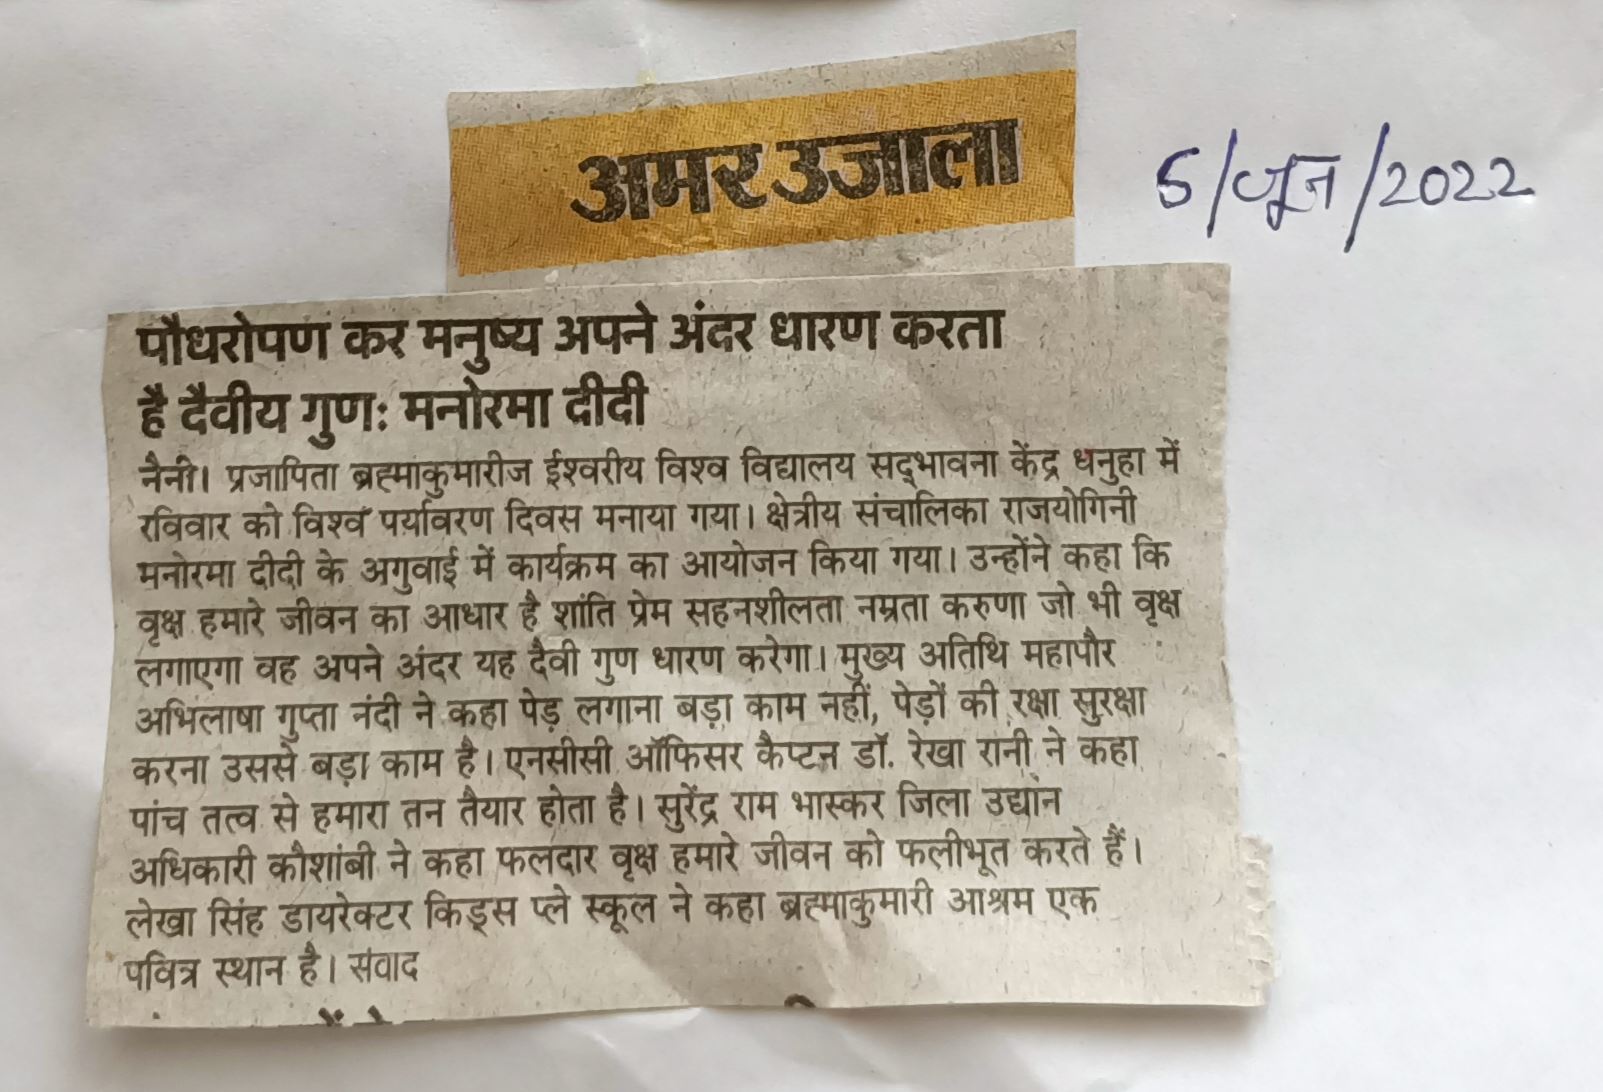 अमर उजाला
5/जून/2022
पौधरोपण कर मनुष्य अपने अंदर धारण करता
है दैवीय गुण: मनोरमा दीदी
नैनी। प्रजापिता ब्रह्माकुमारीज ईश्वरीय विश्व विद्यालय सद्भावना केंद्र धनुहा में
रविवार को विश्व पर्यावरण दिवस मनाया गया। क्षेत्रीय संचालिका राजयोगिनी
मनोरमा दीदी के अगुवाई में कार्यक्रम का आयोजन किया गया। उन्होंने कहा कि
वृक्ष हमारे जीवन का आधार है शांति प्रेम सहनशीलता नम्रता करुणा जो भी वृक्ष
लगाएगा वह अपने अंदर यह दैवी गुण धारण करेगा। मुख्य अतिथि महापौर
अभिलाषा गुप्ता नंदी ने कहा पेड़ लगाना बड़ा काम नहीं, पेड़ों की रक्षा सुरक्षा
करना उससे बड़ा काम है। एनसीसी ऑफिसर कैप्टन डॉ. रेखा रानी ने कहा
पांच तत्व से हमारा तन तैयार होता है। सुरेंद्र राम भास्कर जिला उद्यान
अधिकारी कौशांबी ने कहा फलदार वृक्ष हमारे जीवन को फलीभूत करते हैं।
लेखा सिंह डायरेक्टर किड्स प्ले स्कूल ने कहा ब्रह्माकुमारी आश्रम एक
पवित्र स्थान है। संवाद